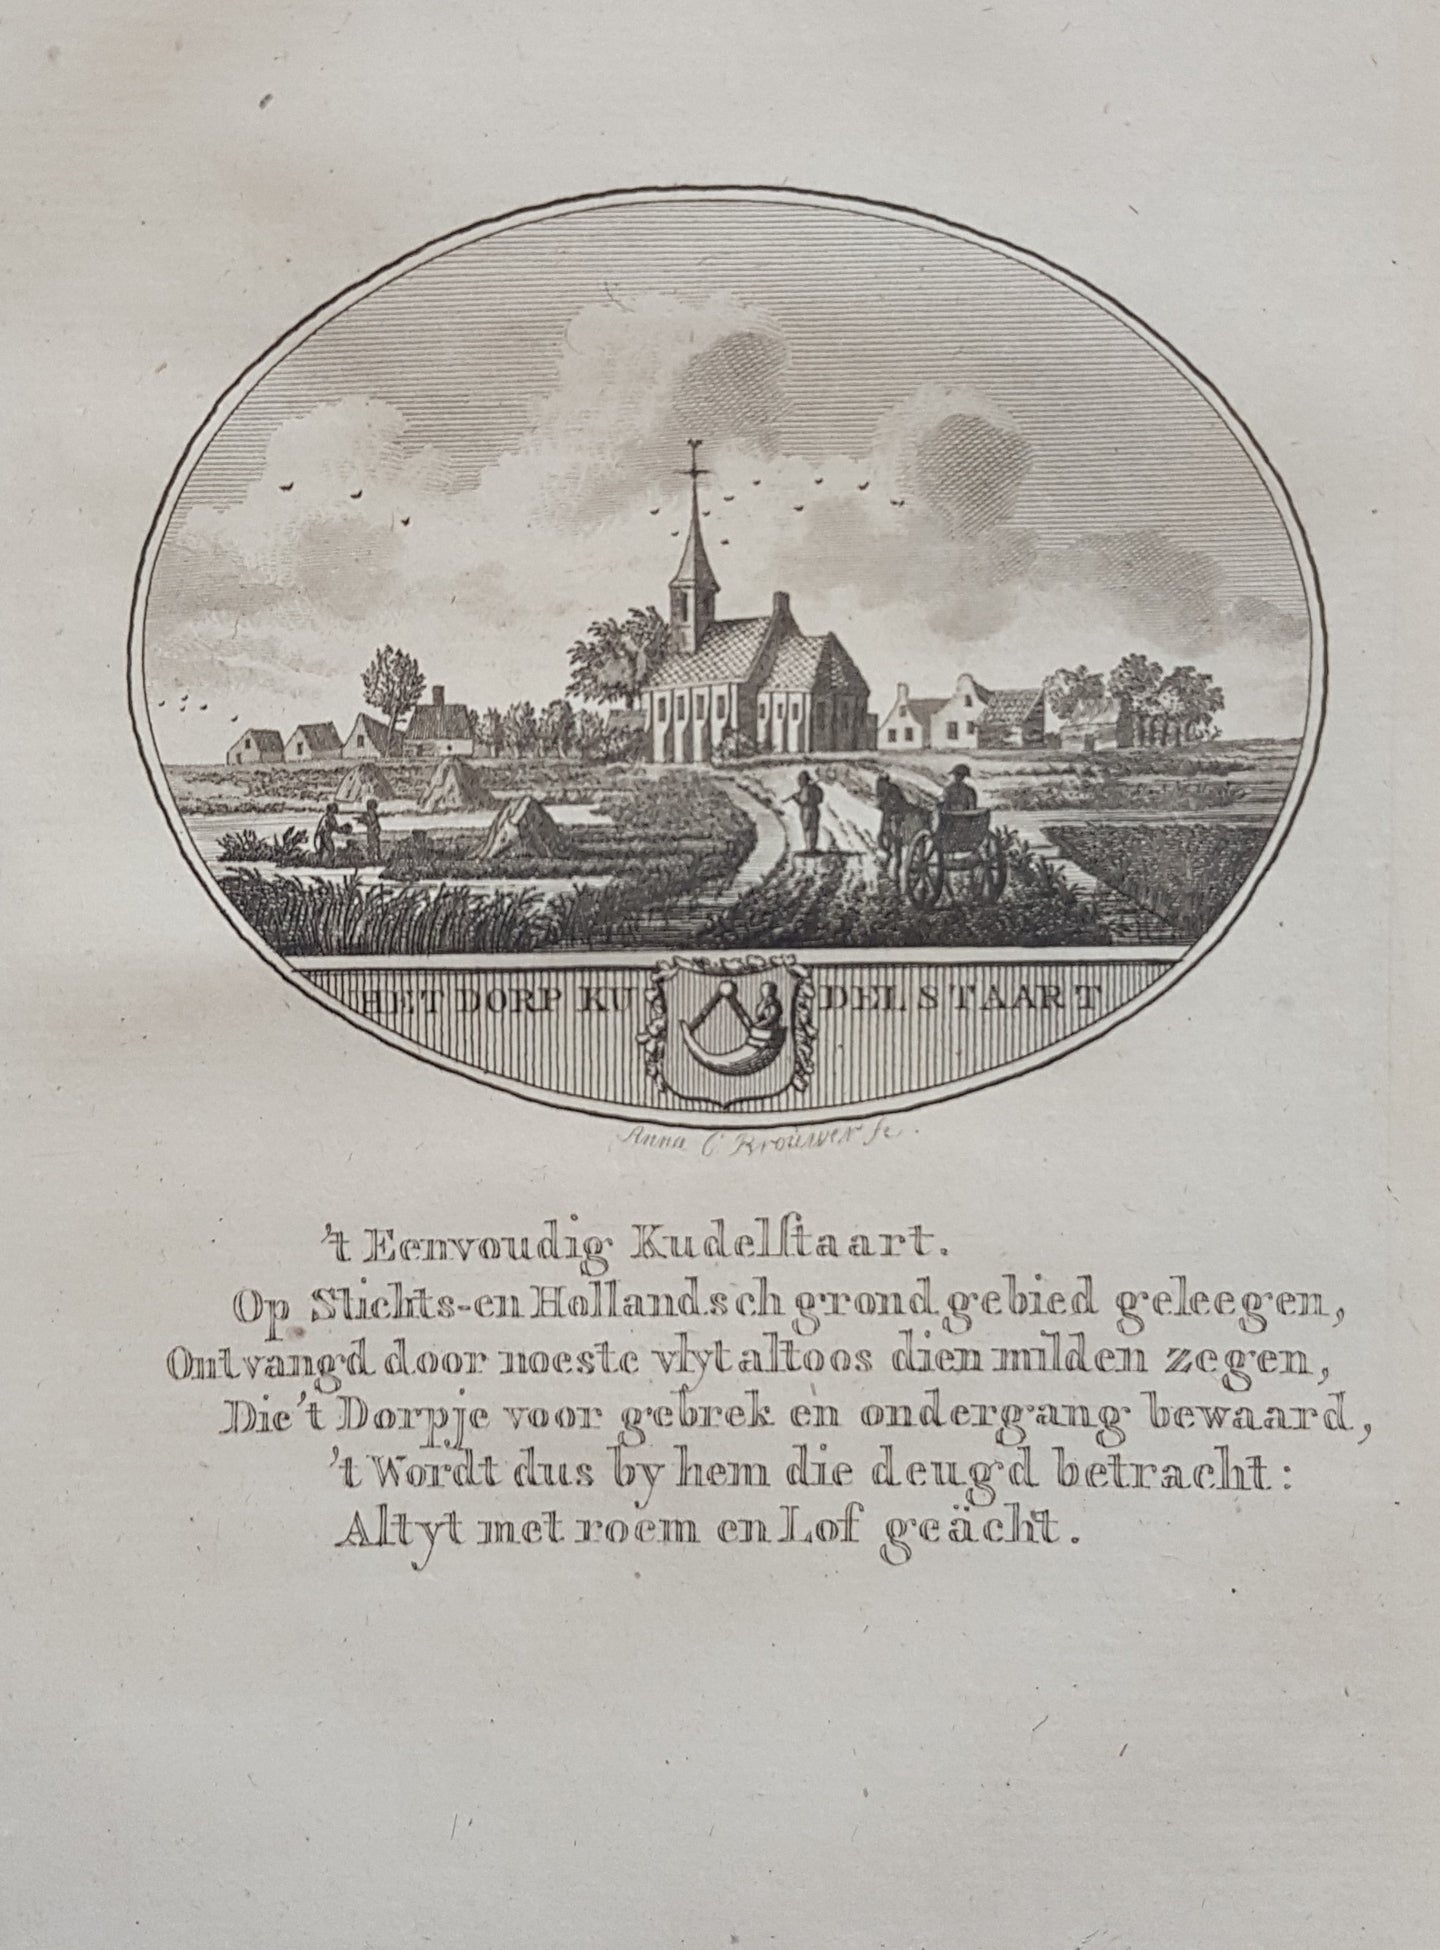 HET DORP KUDELSTAART
Anna C Brouwer fe.
't Eenvoudig Kudelſtaart.
Op Stichts-en Hollandsch grond gebied geleegen,
Ontvangd door noeste vlyt altoos dien milden zegen,
Die 't Dorpje voor gebrek en ondergang bewaard,
't Wordt dus by hem die deugd betracht:
Altyt met roem en Lof geächt.